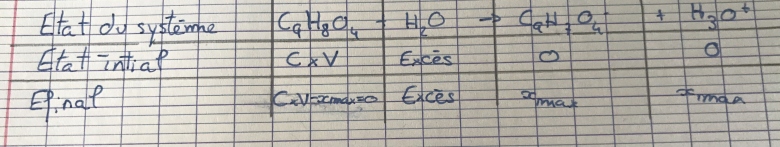 Etat du système C9H8O4 + H2O → C9H7O4 + H3O+
Etat intial C×V Excès 0 0
Efinal C×V-xmax=0 Excès xmax xmax